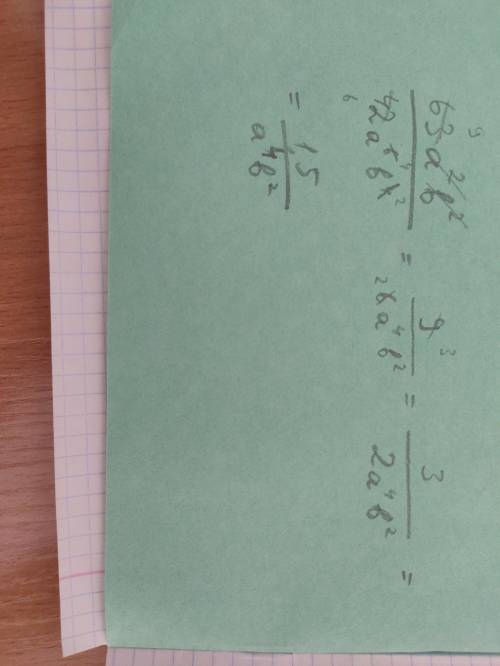 63a²b² / 42a⁶b⁴ = 9 / 6a⁴b² = 3 / 2a⁴b² =
= 15 / a⁴b²